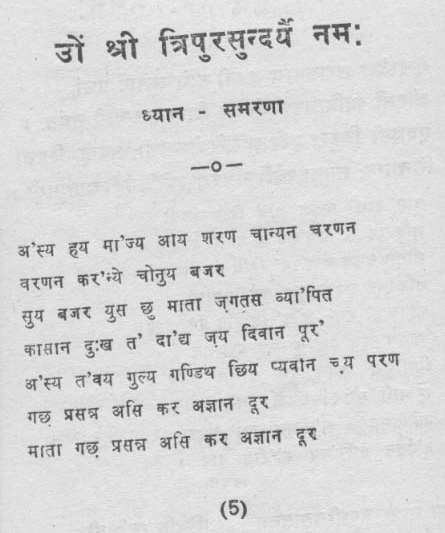 उों श्री त्रिपुरसुन्दर्यै नमः
ध्यान - समरणा
—o—
अ'स्य ह्यय मा'ज्य आय शरण चान्यन चरणन
वरणन कर'न्ये चोनुय बजर
सुय बजर युस छु माता ज़गतस व्या'पित
कासान दुःख त' दा'द्य ज़य दिवान पूर'
अ'स्य त'वय गुल्य गण्डिथ छिय प्यवान च़्य परण
गछ़ प्रसन्न असि कर अज्ञान दूर
माता गछ़ प्रसन्न असि कर अज्ञान दूर
(5)